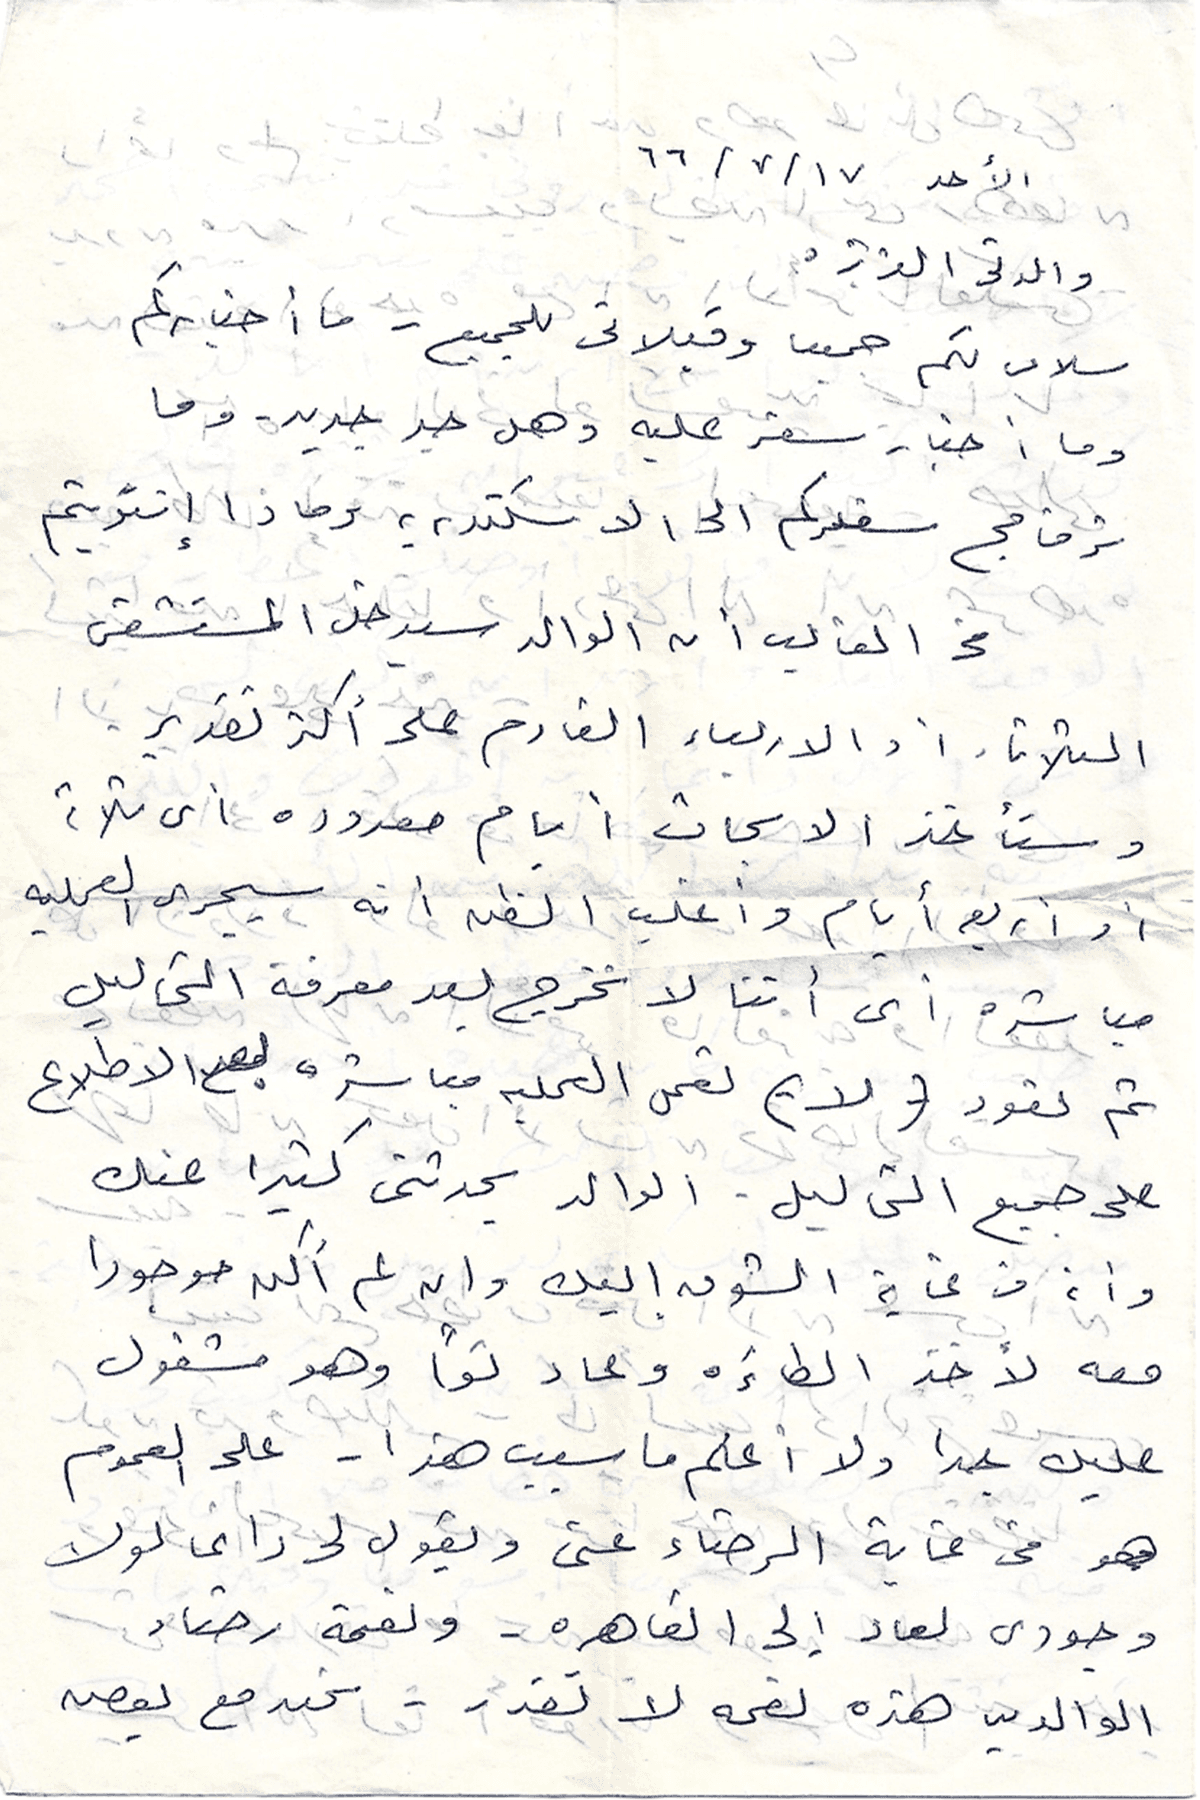 الأحد ١٧/٧/٦٦
والدتى العزيزه
سلامى لكم جميعا وقبلاتى للجميع - ما أخباركم
وما أخبار سفر عليه وهل جد جديد - وما
برنامج سفركم الى الاسكندريه وماذا إنتويتم
فى الغالب أن الوالد سيدخل المستشفى
الثلاثاء أو الاربعاء القادم على أكثر تقدير
وستأخذ الابحاث أيام معدوده أى ثلاثة
أو أربع أيام وأغلب الظن أنه سيجرى العمليه
مباشره أى أننا لا نخرج بعد معرفة التحاليل
ثم نعود لا بل تعمل العمليه مباشره بعد الاطلاع
على جميع التحاليل - الوالد يحدثنى كثيرا عنك
وأنه فى غاية الشوق إليك وان لم أكن موجودا
معه لأخذ الطائره وعاد توا وهو مشغول
عليك جدا ولا أعلم ما سبب هذا - على العموم
هو فى غاية الرضاء عنى ويقول لى دائما لولا
وجودى لعاد إلى القاهره - ونعمة رضاء
الوالدين هذه نعمه لا تقدر - نحن مع بعض